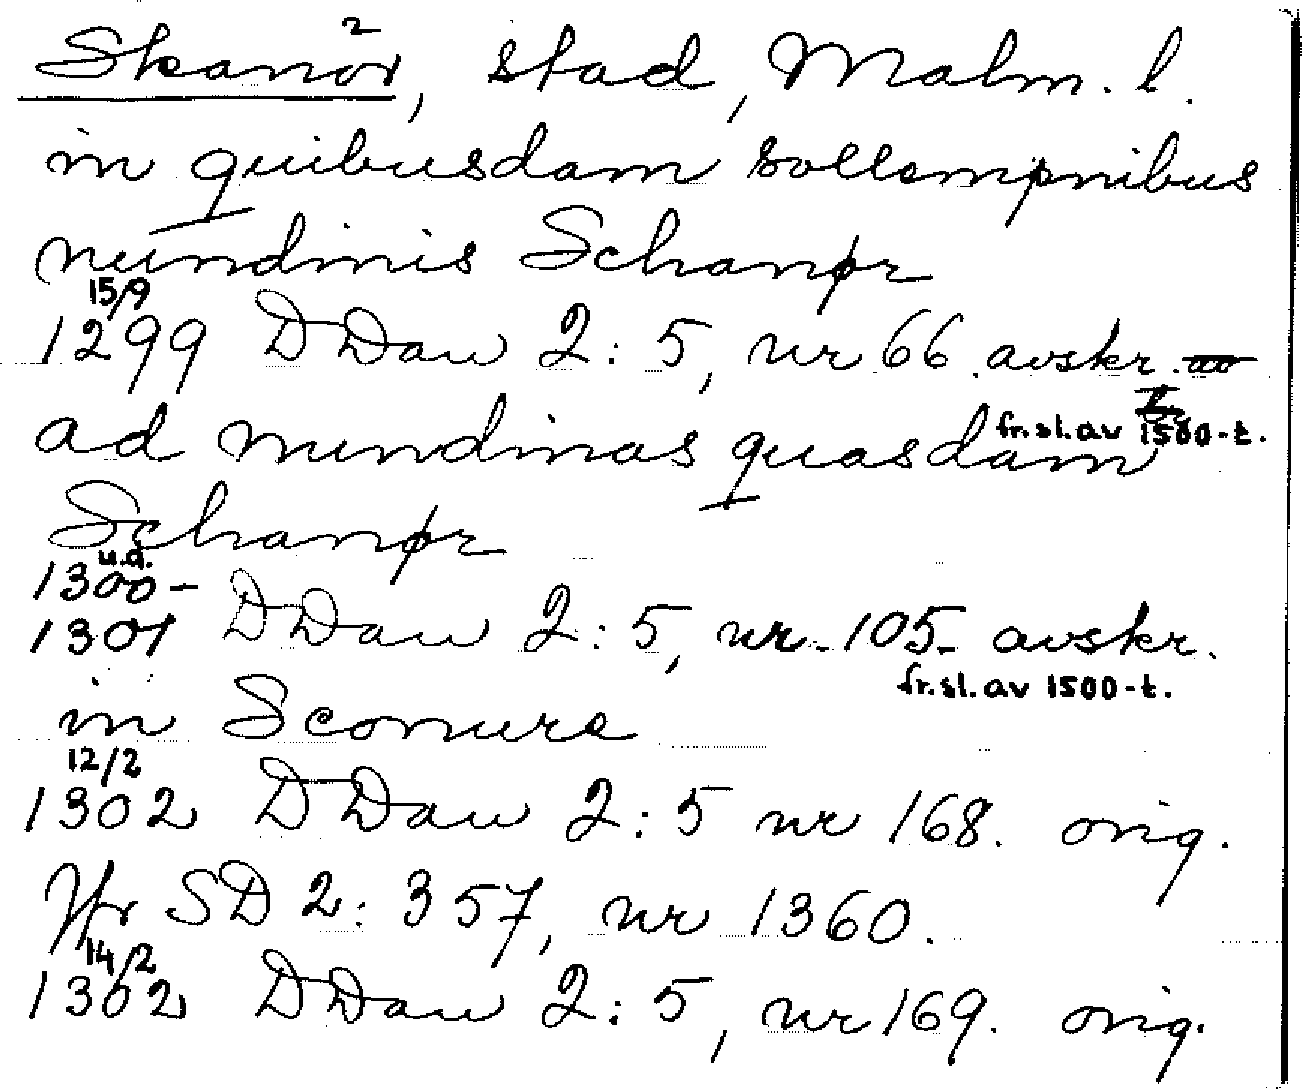 2
Skanör, stad, Malm. l.
in quibusdam sollempnibus
nundinis Schanør
15/9
1299 DDan 2:5, nr 66. avskr. av
fr.sl.av 1500-t.
ad nundinas quasdam
Schanør
u.d.
1300-
1301 DDan 2:5, nr. 105. avskr.
fr.sl.av 1500-t.
in Sconure
12/2
1302 DDan 2:5 nr 168. orig.
Jfr SD 2:357, nr 1360.
14/2
1302 DDan 2:5, nr 169. orig.